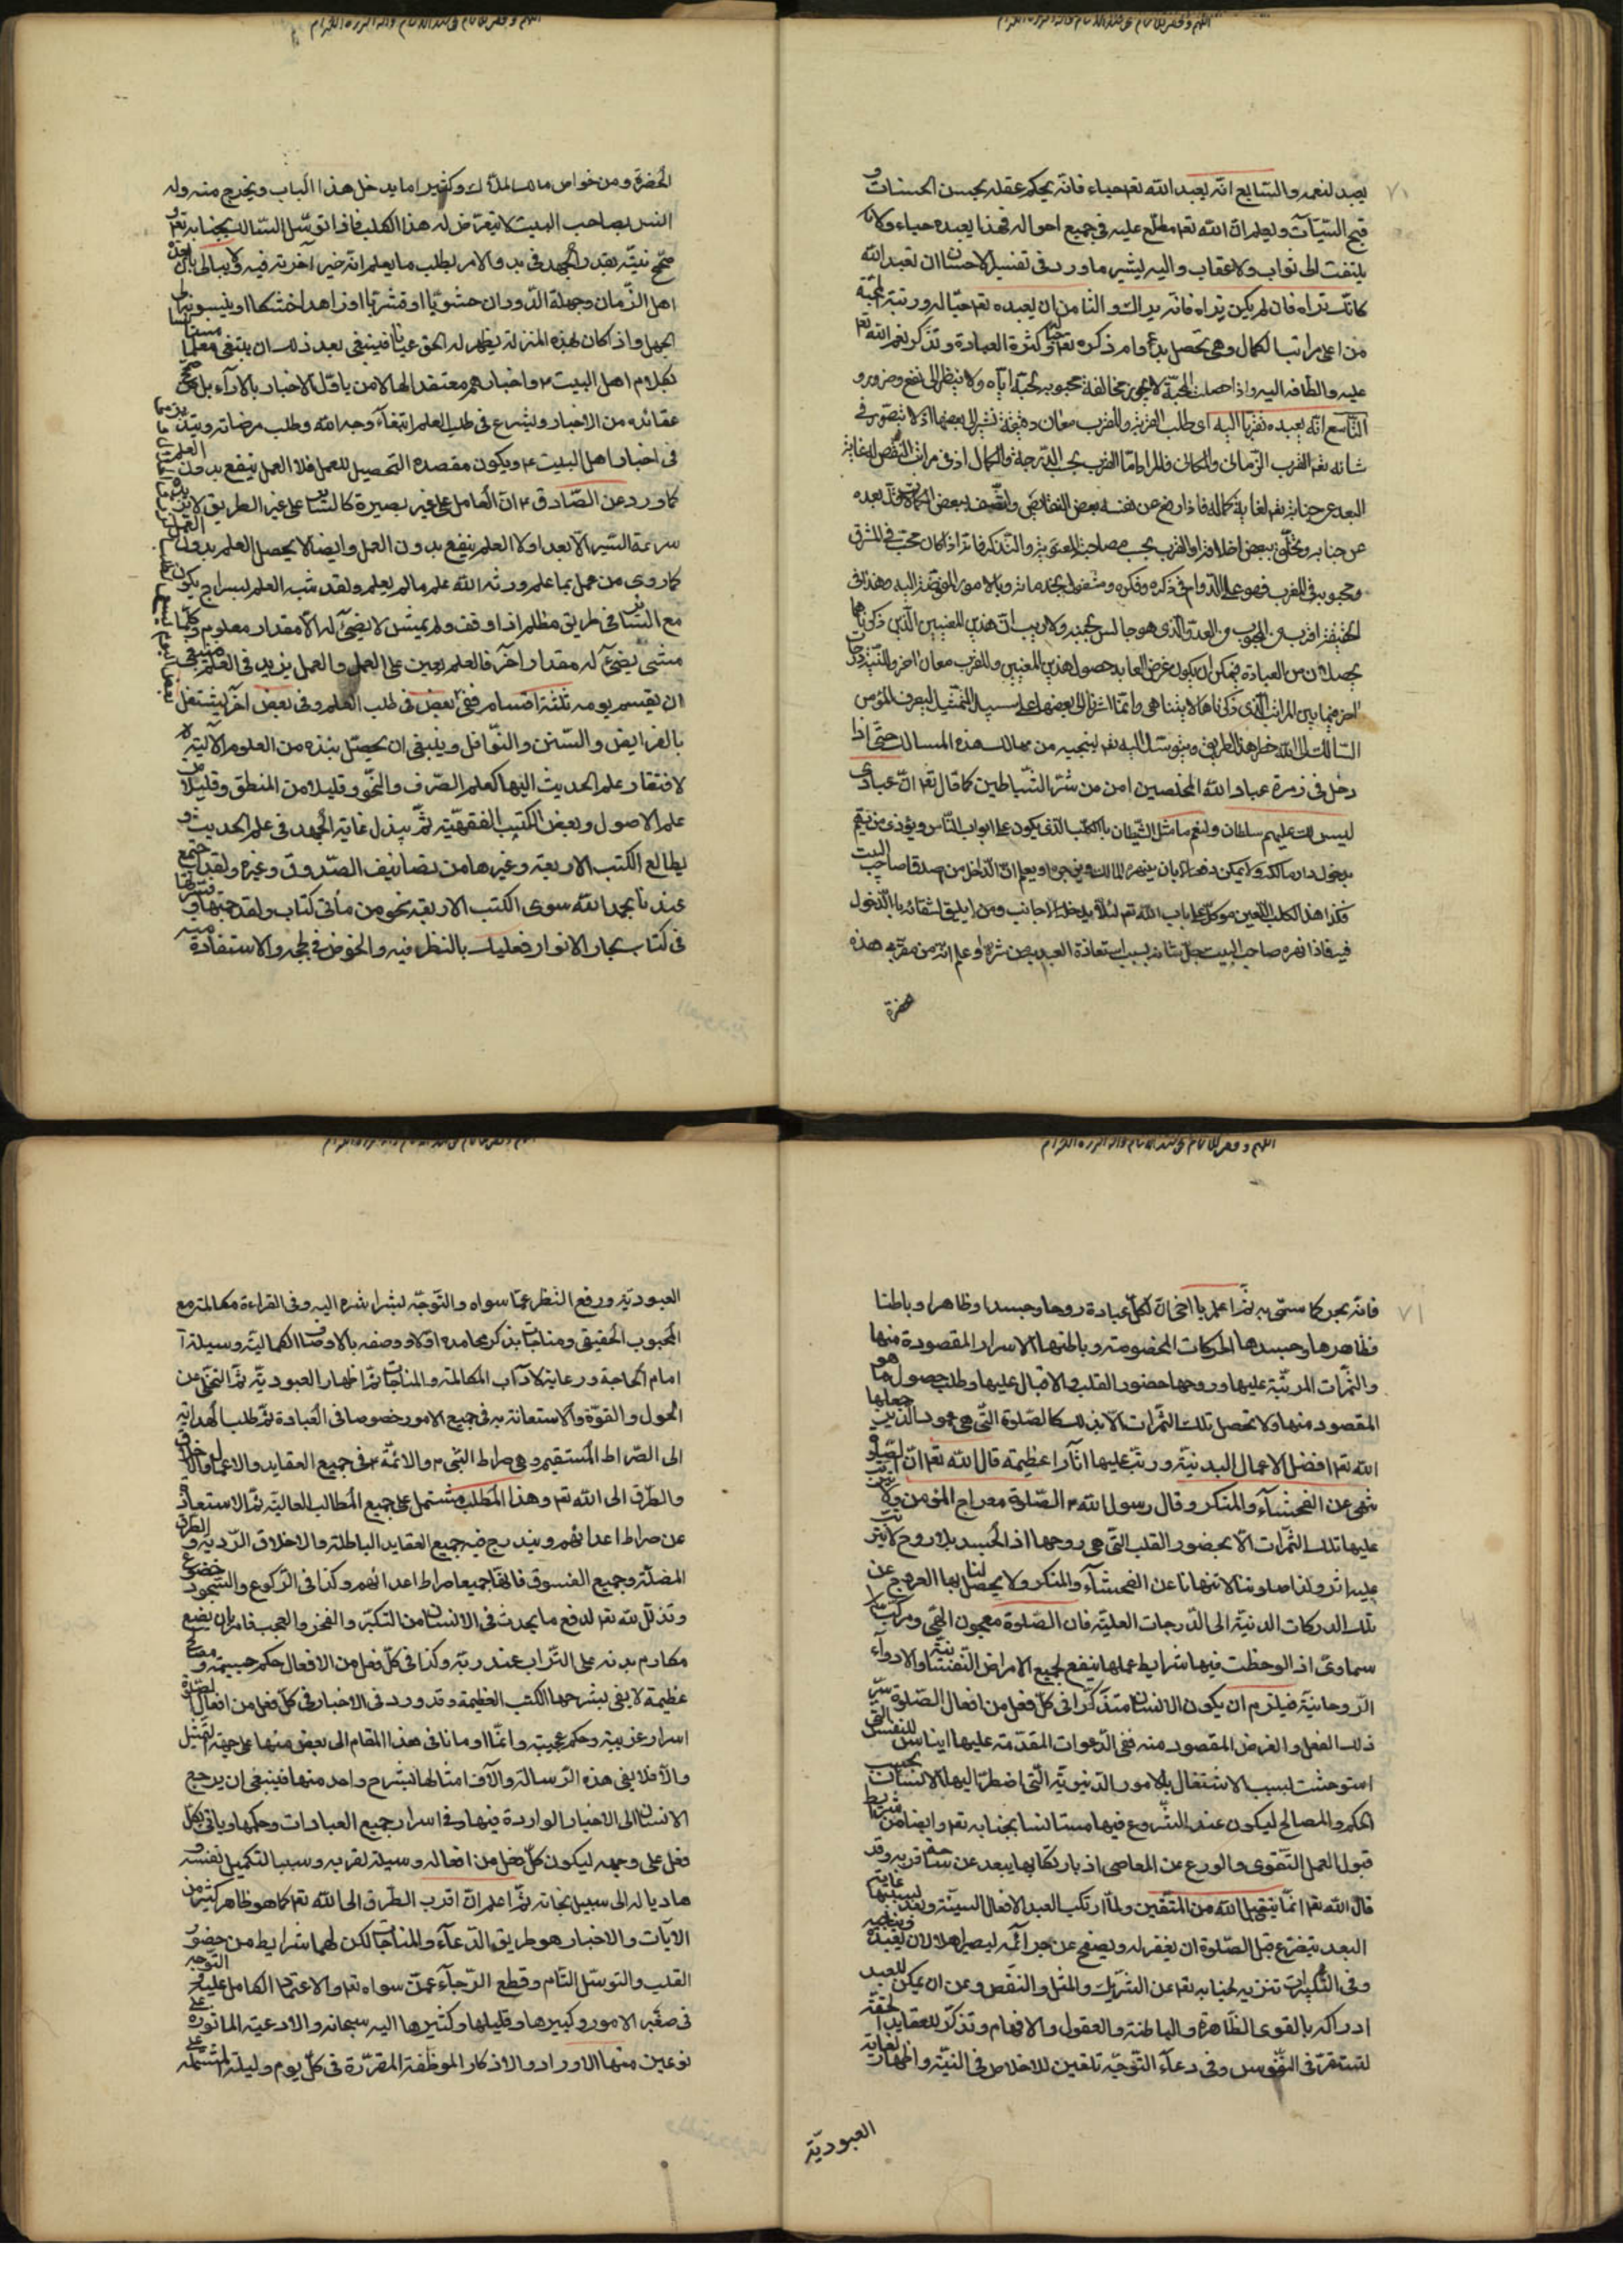 يصيد لنعمه والسابع انه يعبد الله تعم حياء فانه يحكم عقله بحسن الحسنات و
قبح السيئات ويعلم ان الله تعم مطلع عليه في جميع احواله فهذا يعبده حياء ولا
يلتفت الى ثواب ولا عقاب واليه يشير ما ورد في تفسير الاحسان ان تعبد الله
كانك تراه فان لم يكن تراه فانه يراك والثامن ان يعبده تعم حبا له ورتبة المحبة
من اعلى مراتب الكمال وهي تحصل بدوام ذكره تعم وكثرة العبادة وتذكر نعم الله تعم
عليه والطافه اليه واذا حصلت المحبة لا يجوز مخالفة محبوبه لحبه اياه ولا ينظر الى نفع وضرر و
التاسع انه يعبده تقربا اليه اى طلب القربة وللقرب معان دقيقة نشير الى بعضها اذ لا يتصور في
شانه تعم القرب الزماني والمكاني فالمراد اما القرب بحسب الدرجة والكمال اذ في مراتب النقص له غاية
البعد عن جنابه تعم لغاية كماله فاذا رفع عن نفسه بعض النقائص واتصف ببعض الكمالات قل بعده
عن جنابه وتخلق ببعض اخلاقه او القرب بحسب مصاحبة المعنوية والتذكر فانه اذا كان محب في المشرق
ومحبوبه في المغرب فهو على الدوام في ذكره وفكره ومشغول بخدماته وبالامور المفوضة اليه وهذا في
الحقيقة اقرب من المحبوب من العدو الذي هو جالس بجنبه ولا ريب ان هذين المعنيين الذين ذكرناهما
يحصلان من العبادة فيمكن ان يكون غرض العابد حصول هذين المعنيين وللقرب معان اخر وللنية درجات
اخر فيما بين المراتب الذي ذكرناها لا يتناهى وانما اشرنا الى بعضها على سبيل التمثيل ليعرف المؤمن
السالك الى الله خطر هذا الطريق ويتوسل اليه تعم لينجيه من مهالك هذه المسالك حتى اذا
دخل في زمرة عباد الله المخلصين امن من شر الشياطين كما قال تعم ان عبادى
ليس لك عليهم سلطان ولنعم ما مثل الشيطان بالكلب الذي يكون على ابواب الناس ويؤذي من يهم
بدخول دار مالكه ولا يمكن دفعه الا بان ينهره المالك ويزجره او يعلم ان الداخل من اصدقا صاحب البيت
فكذا هذا الكلب اللعين موكل على باب الله تعم لئلا يدخله الاجانب ومن لا يليق لشقائه بالدخول
فيه فاذا نهره صاحب البيت جل شانه بسبب استعاذة العبد به من شره او علم انه من مقربي هذه
حضرة
الحضرة ومن خواص مالك الملك وكثيرا ما يدخل هذا الباب ويخرج منه وله
انس بصاحب البيت لا يتعرض له هذا الكلب فاذا توسل السالك بجنابه تعم و
صحح نيته بقدر الجهد في بدو الامر يطلب ما يعلم انه خير آخرته فيه ولا يبالي بان يعده
اهل الزمان وجهلة الدوران حشويا او قشريا او زاهدا خشكا او ينسبونه الى
الجهل واذ كان بهذه المنزلة يظهر له الحق عيانا فينبغي بعد ذلك ان يبتغي معلما مستانسا
بكلام اهل البيت ع واخبارهم معتقدا لها لا من ياول الاخبار بالآراء بل من صحح
عقائده من الاخبار ويشرع في طلب العلم ابتغاء وجه الله وطلب مرضاته ويتدبر
في اخبار اهل البيت ع ويكون مقصده التحصيل للعمل فلا العمل ينفع بدون العلم
كما ورد عن الصادق ع ان العامل على غير بصيرة كالسائر على غير الطريق لا يزيده
سرعة السير الا بعدا ولا العلم ينفع بدون العمل وايضا لا يحصل العلم بدون العمل
كما روى من عمل بما علم ورثه الله علم ما لم يعلم ولقد شبه العلم بسراج يكون
مع السائر في طريق مظلم اذا وقف ولم يمش لا يضيء له الا مقدار معلوم وكلما
مشى يضيء له مقدار آخر فالعلم يعين على العمل والعمل يزيد في العلم فينبغي
ان يقسم يومه ثلثة اقسام ففي بعض في طلب العلم وفي بعض آخر ليشتغل
بالفرايض والسنن والنوافل وينبغي ان يحصل بنذه من العلوم الآلية
لافتقار علم الحديث اليها كعلم الصرف والنحو وقليلا من المنطق وقليلا من
علم الاصول وبعض الكتب الفقهية ثم يبذل غاية الجهد في علم الحديث و
يطالع الكتب الاربعة وغيرها من تصانيف الصدوق وغيره ولقد اجتمع
عندنا بحمد الله سوى الكتب الاربعة نحو من مأتى كتاب ولقد جمعتها و فسرتها
في كتاب بحار الانوار فعليك بالنظر فيه والخوض في لججه والاستفادة منه
فانه بحر كما سمى به ثم اعلم يا اخى ان لكل عبادة روحا وجسدا وظاهرا وباطنا
فظاهرها وجسدها الحركات المخصوصة وباطنها الاسرار المقصودة منها
والثمرات المرتبة عليها وروحها حضور القلب والاقبال عليها وطلب حصول ما هو
المقصود منها ولا تحصل تلك الثمرات الا بذلك كالصلوة التي هي عمود الدين جعلها
الله تعم افضل الاعمال البدنية ورتب عليها آثارا عظيمة قال الله تعم ان الصلوة
تنهى عن الفحشاء والمنكر وقال رسول الله ص الصلوة معراج المؤمن ولا يترتب
عليها تلك الثمرات الا بحضور القلب التي هي روحها اذ الجسد بلا روح لا يترتب
عليه اثر ولذا صلوتنا لا تنهانا عن الفحشاء والمنكر ولا يحصل لنا بها العروج عن
تلك الدركات الدنية الى الدرجات العلية فان الصلوة معجون الهي ومركب
سماوى اذا لوحظت فيها شرايط عملها ينفع لجميع الامراض النفسانية والادواء
الروحانية فيلزم ان يكون الانسان متذكرا في كل فعل من افعال الصلوة سر
ذلك الفعل والغرض المقصود منه ففي الدعوات المقدمة عليها ايناس للنفس التي
استوحشت بسبب الاشتغال بالامور الدنيوية التي اضطر اليها الانسان بحسب
الحكم والمصالح ليكون عند الشروع فيها مستانسا بجنابه تعم وايضا من شرايط
قبول العمل التقوى والورع عن المعاصى اذ بارتكابها يبعد عن ساحة قربه وقد
قال الله تعم انما يتقبل الله من المتقين ولما ارتكب العبد الافعال السيئة وبعد بسببها غاية
البعد يتضرع قبل الصلوة ان يغفر له ويصفح عن جرائمه ليصير اهلا لان يعبده ويناجيه
وفي التكبيرات تنزيه لجنابه تعم عن الشريك والمثل والنقص وعن ان يمكن للعبد
ادراكه بالقوى الظاهرة والباطنة والعقول والافهام وتذكر للعقايد الحقة
لتستقر في النفوس وفي دعاء التوجه تلقين للاخلاص في النية واظهار لغاية
العبودية
العبودية ورفع النظر عما سواه والتوجه بشراشره اليه وفي القراءة مكالمة مع
المحبوب الحقيقي ومناجات بذكر محامده اولا ووصفه بالاوصاف الكمالية وسيلة
امام الحاجة ورعاية لآداب المكالمة والمناجات ثم اظهار العبودية ثم التخلى عن
الحول والقوة والاستعانة به في جميع الامور خصوصا في العبادة ثم طلب الهداية
الى الصراط المستقيم وهي صراط النبي ص والائمة ع في جميع العقايد والاعمال والاخلاق
والطرق الى الله تعم وهذا المطلب مشتمل على جميع المطالب العالية ثم الاستعاذة
عن صراط اعدائهم ويندرج فيه جميع العقايد الباطلة والاخلاق الردية و الطرق
المضلة وجميع الفسوق فانها جميعا صراط اعدائهم وكذا في الركوع والسجود خضوع
وتذلل لله تعم لدفع ما يحدث في الانسان من التكبر والفخر والعجب فامر بان يضع
مكارم بدنه على التراب عند ربه وكذا في كل فعل من الافعال حكم جسيمة و مصالح
عظيمة لا يفي بشرحها الكتب العظيمة وقد ورد في الاخبار في كل فعل من افعال الصلوة
اسرار غريبة وحكم عجيبة وانما اومانا في هذا المقام الى بعض منها على جهة التمثيل
والا فلا يفي هذه الرسالة وآلاف امثالها بشرح واحد منها فينبغي ان يرجع
الانسان الى الاخبار الواردة فيها وفي اسرار جميع العبادات وحكمها وياتي بكل
فعل على وجهه ليكون كل فعل من افعاله وسيلة لقربه وسببا لتكميل نفسه و
هاديا له الى سبيل نجاته ثم اعلم ان اقرب الطرق الى الله تعم كما هو ظاهر كثير من
الآيات والاخبار هو طريق الدعاء والمناجات لكن لهما شرايط من حضور
القلب والتوسل التام وقطع الرجاء عمن سواه تعم والاعتماد الكامل عليه والتوجه
في صغير الامور وكبيرها وقليلها وكثيرها اليه سبحانه والادعية الماثورة على
نوعين منها الاوراد والاذكار الموظفة المقررة في كل يوم وليلة المشتملة على